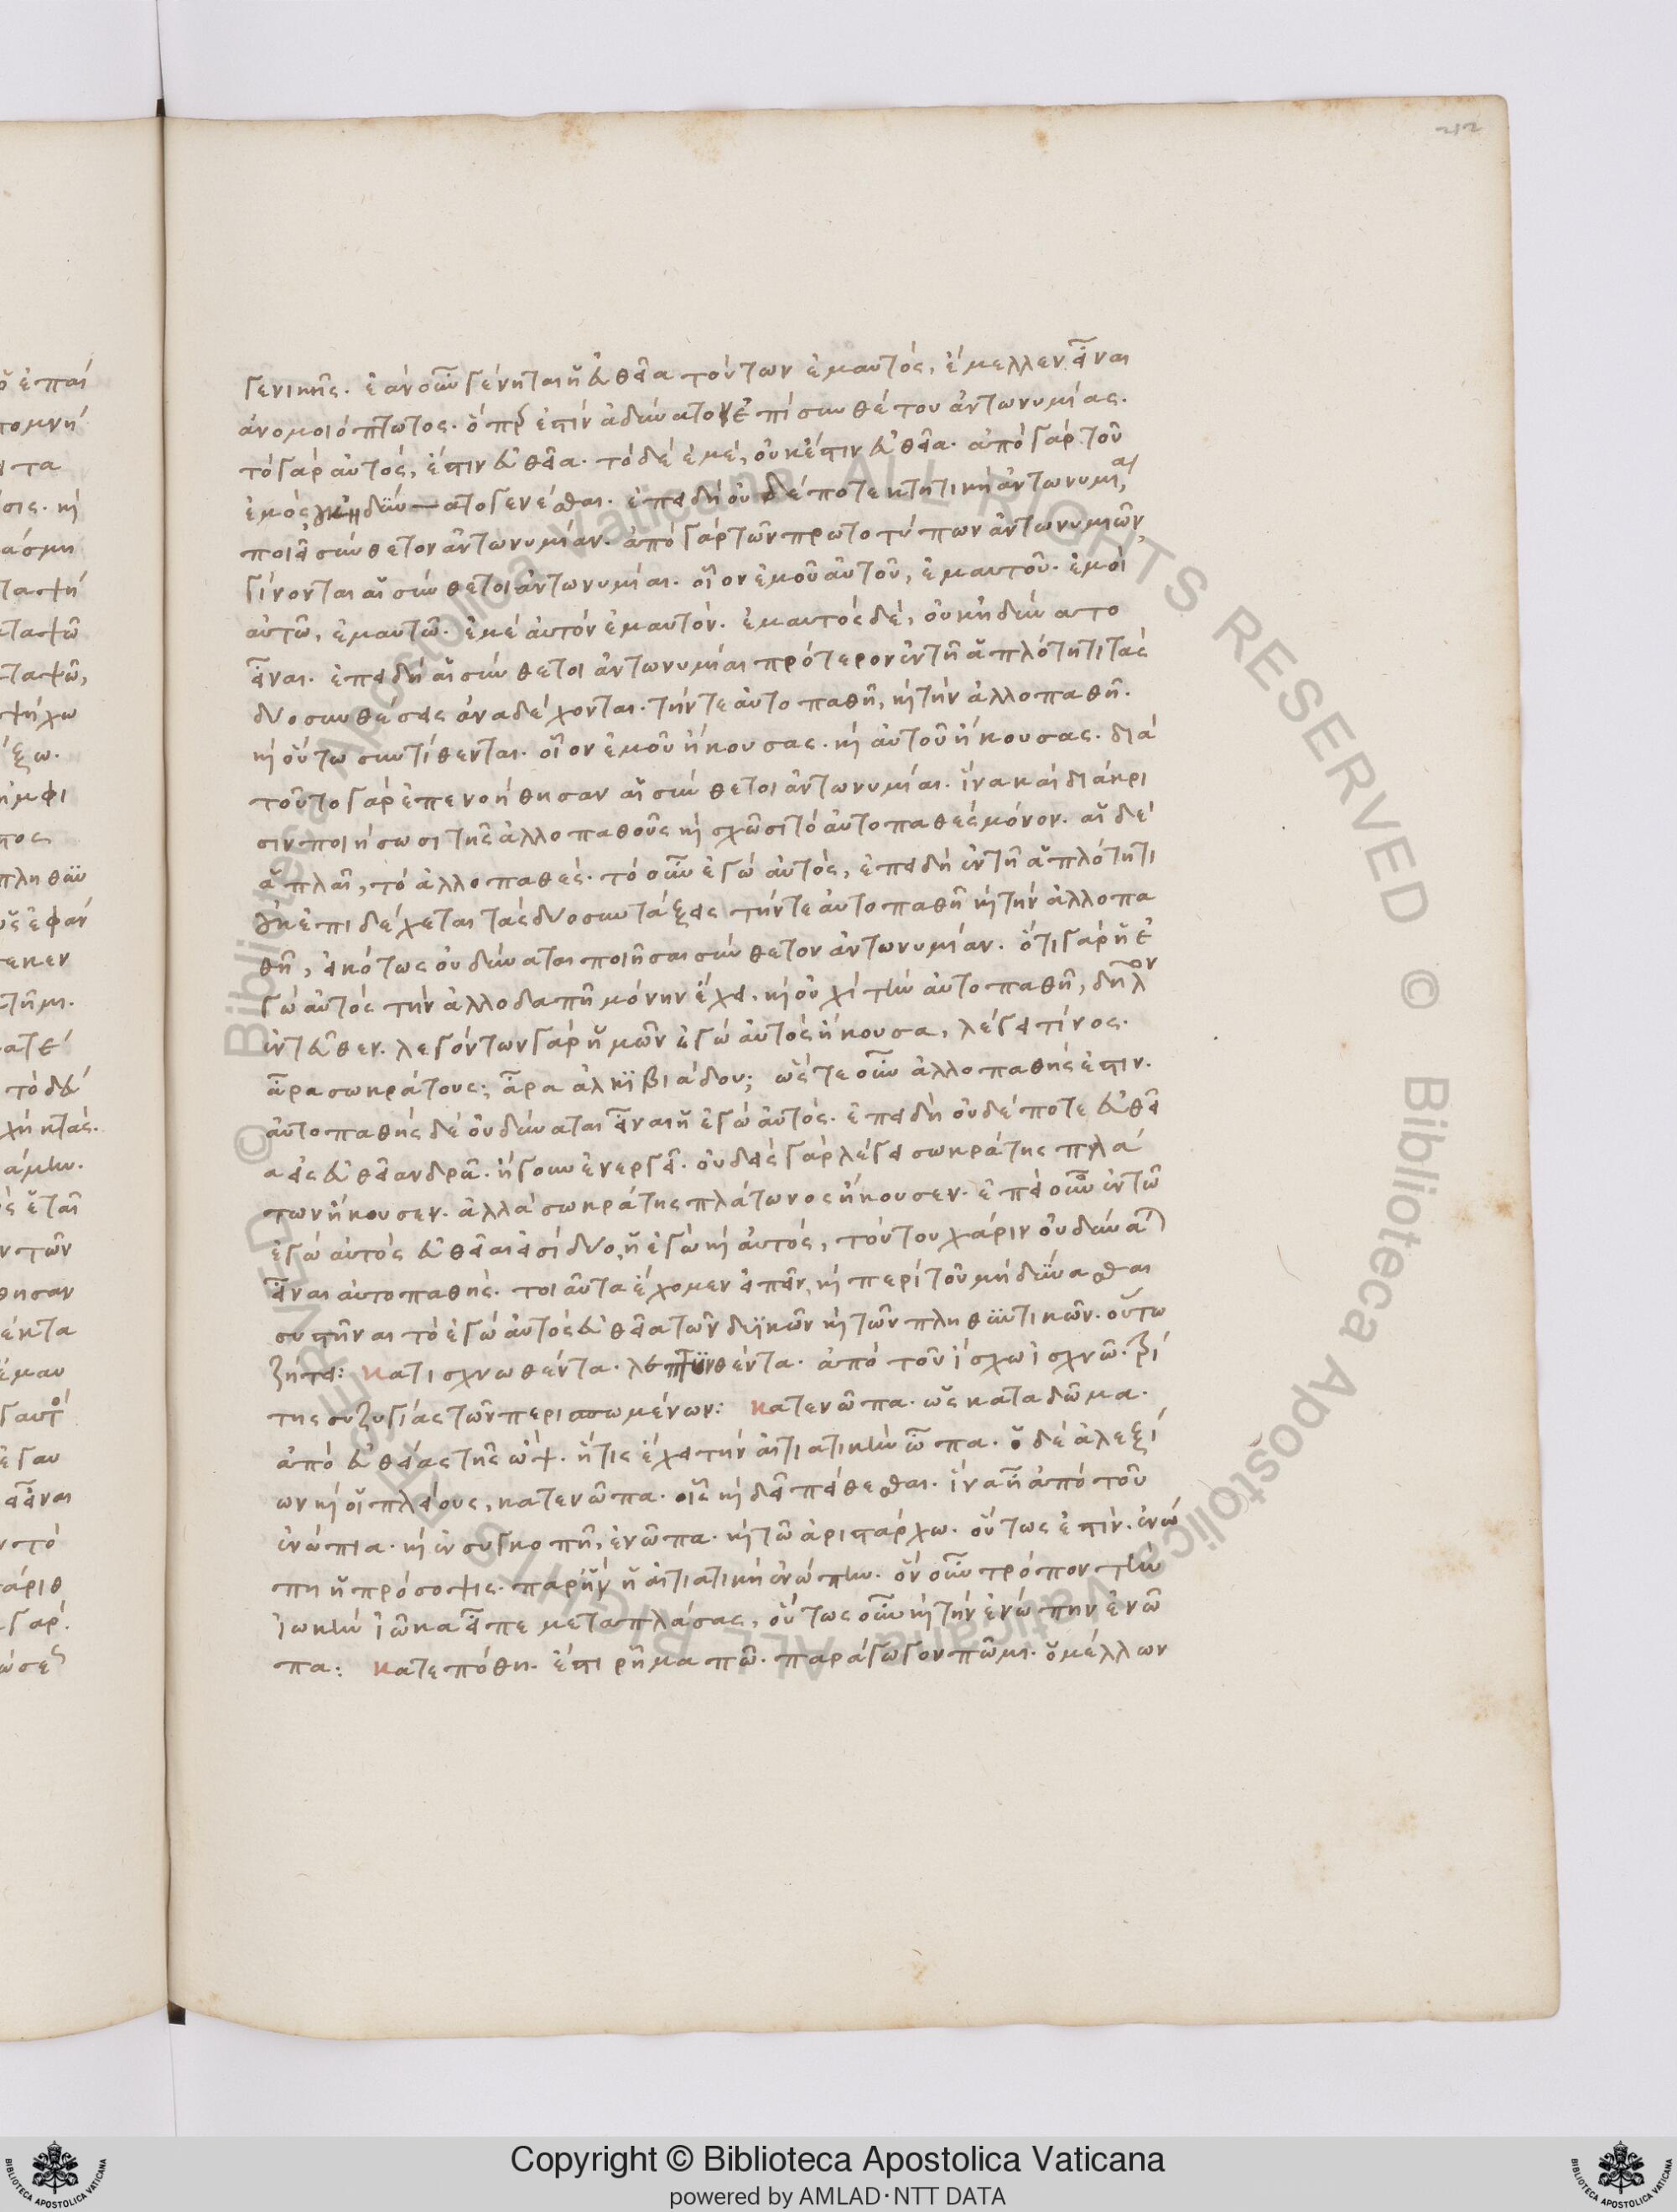 212
γενικῆς. ἐὰν οὖν γένηται ἡ εὐθεῖα τούτων ἐμαυτός, ἔμελλεν εἶναι
ἀνομοιόπτωτος. ὅπερ ἐστὶν ἀδύνατον ἐπὶ συνθέτου ἀντωνυμίας.
τὸ γὰρ αὐτός, ἔστιν εὐθεῖα. τὸ δὲ ἐμέ, οὐκ ἔστιν εὐθεῖα. ἀπὸ γὰρ τοῦ
ἐμός οὐκ ἠδύνατο γενέσθαι. ἐπειδὴ οὐδέποτε κτητικὴ ἀντωνυμία
ποιεῖ σύνθετον ἀντωνυμίαν. ἀπὸ γὰρ τῶν πρωτοτύπων ἀντωνυμιῶν,
γίνονται αἱ σύνθετοι ἀντωνυμίαι. οἷον ἐμοῦ αὐτοῦ, ἐμαυτοῦ. ἐμοὶ
αὐτῶ, ἐμαυτῶ. ἐμὲ αὐτὸν ἐμαυτόν. ἐμαυτὸς δὲ, οὐκ ἠδύνατο
εἶναι. ἐπειδὴ αἱ σύνθετοι ἀντωνυμίαι πρότερον ἐν τῆ ἁπλότητι τὰς
δύο συνθέσεις ἀναδέχονται. τήν τε αὐτοπαθῆ, καὶ τὴν ἀλλοπαθῆ.
καὶ οὕτω συντίθενται. οἷον ἐμοῦ ἤκουσας. καὶ αὐτοῦ ἤκουσας. διὰ
τοῦτο γὰρ ἐπενοήθησαν αἱ σύνθετοι ἀντωνυμίαι. ἵνα καὶ διάκρι
σιν ποιήσωσι τῆς ἀλλοπαθοῦς καὶ σχῶσι τὸ αὐτοπαθὲς μόνον. αἱ δὲ
ἁπλαῖ, τὸ ἀλλοπαθές. τὸ οὖν ἐγὼ αὐτός, ἐπειδὴ ἐν τῆ ἁπλότητι
οὐκ ἐπιδέχεται τὰς δύο συντάξεις τήν τε αὐτοπαθῆ καὶ τὴν ἀλλοπα
θῆ, εἰκότως οὐ δύναται ποιῆσαι σύνθετον ἀντωνυμίαν. ὅτι γὰρ ἡ ἐ
γὼ αὐτός τὴν ἀλλοδαπῆ μόνην ἔχει. καὶ οὐχὶ τὴν αὐτοπαθῆ, δῆλον
ἐντεῦθεν. λεγόντων γὰρ ἡμῶν ἐγὼ αὐτὸς ἤκουσα, λέγει τίνος.
ἆρα σωκράτους; ἆρα ἀλκιβιάδου; ὥστε οὖν ἀλλοπαθής ἐστιν.
αὐτοπαθὴς δὲ οὐ δύναται εἶναι ἡ ἐγὼ αὐτός. ἐπειδὴ οὐδέποτε εὐθεῖ
α εἰς εὐθεῖαν δρᾶ. ἤγουν ἐνεργεῖ. οὐδεὶς γὰρ λέγει σωκράτης πλά
των ἤκουσεν. ἀλλὰ σωκράτης πλάτωνος ἤκουσεν. ἐπεὶ οὖν ἐν τῶ
ἐγὼ αὐτός εὐθεῖαι εἰσὶ δύο, ἡ ἐγὼ καὶ αὐτός, τούτου χάριν οὐ δύναται
εἶναι αὐτοπαθής. τοιαῦτα ἔχομεν εἰπεῖν, καὶ περὶ τοῦ μὴ δύνασθαι
συστῆναι τὸ ἐγὼ αὐτὸς εὐθεῖα τῶν δυϊκῶν καὶ τῶν πληθυντικῶν. οὕτω
ζήτει: κατισχνωθέντα. λεπτυνθέντα. ἀπὸ τοῦ ἴσχω ἰσχνῶ. τρί
της συζυγίας τῶν περισπωμένων: κατενῶπα. ὡς κατα δῶμα.
ἀπὸ εὐθείας τῆς ὤψ. ἥτις ἔχει τὴν αἰτιατικὴν ὦπα. ὁ δὲ ἀλεξί
ων καὶ οἱ πλείους, κατενῶπα. οἷς καὶ δεῖ πείθεσθαι. ἵνα ἦ ἀπὸ τοῦ
ἐνώπια. καὶ ἐν συγκοπῆ, ἐνῶπα. καὶ τῶ ἀριστάρχω. οὕτως ἐστίν. ἐνώ
πη ἡ πρόσοψις. παρ' ἣν ἡ αἰτιατικὴ ἐνώπην. ὃν οὖν τρόπον τὴν
ἰωκὴν ἰῶκα εἶπε μεταπλάσας, οὕτως οὖν καὶ τὴν ἐνώπην ἐνῶ
πα: κατεπόθη. ἔστι ρῆμα πῶ. παράγωγον πῶμι. ὁ μέλλων
© Biblioteca Apostolica Vaticana ALL RIGHTS RESERVED
Copyright © Biblioteca Apostolica Vaticana
powered by AMLAD·NTT DATA